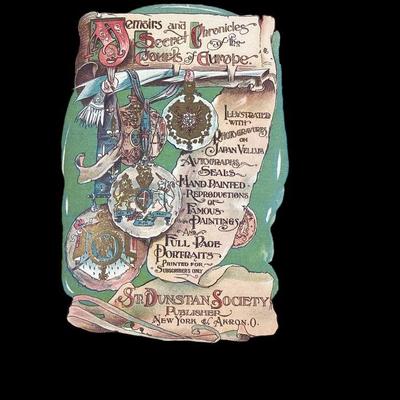 Memoirs and
Secret Chronicles
of the
Courts of Europe.
Illustrated
-with-
Photogravures
on
Japan Vellum
Autographs
Seals
Hand Painted
Reproductions
of
Famous
Paintings
And
Full Page
Portraits
Printed for
Subscribers only
St. Dunstan Society
Publisher
New York & Akron. O.